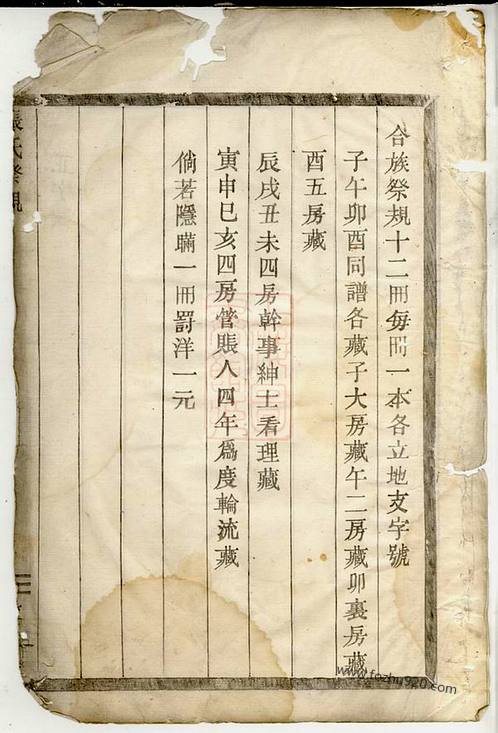 合族祭規十二冊每冊一本各立地支字號
子午卯酉同譜各藏子大房藏午二房藏卯裏房藏
酉五房藏
辰戌丑未四房幹事紳士看理藏
寅申巳亥四房管賬人四年為度輪流藏
倘若隱瞞一冊罰洋一元
張氏祭規
www.fozhu920.com